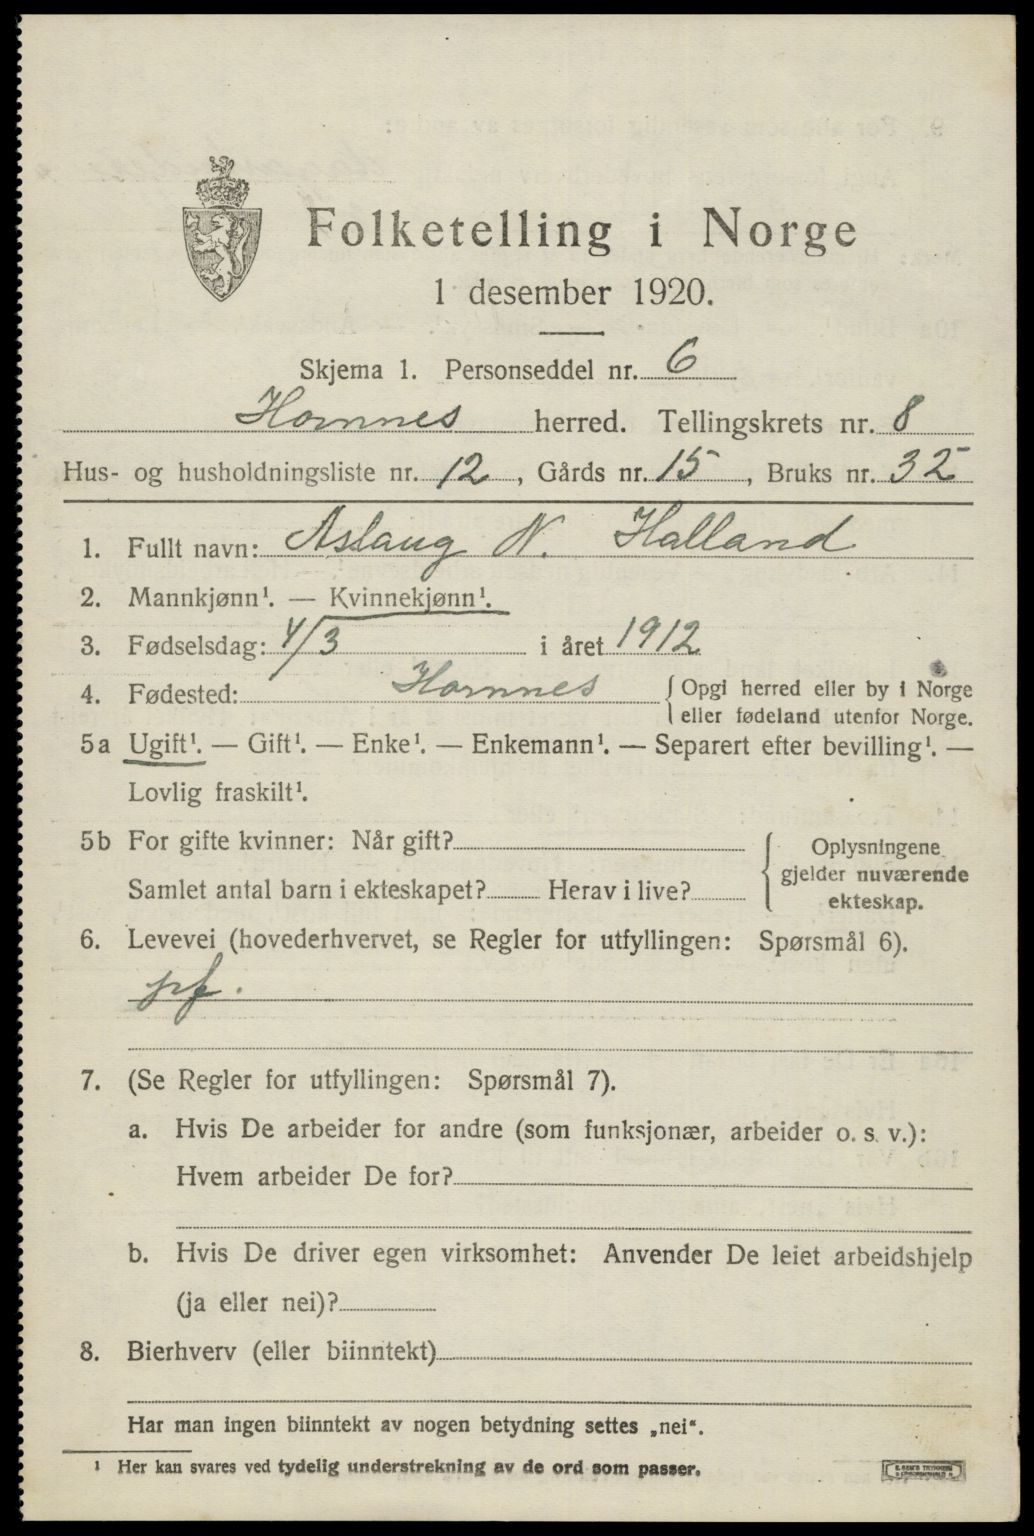 Folketelling i Norge
1 desember 1920.
Skjema 1. Personseddel nr. 6
Hornnes herred. Tellingskrets nr. 8
Hus- og husholdningsliste nr. 12, Gårds nr. 15, Bruks nr. 32
1. Fullt navn: Aslaug N. Halland
2. Mannkjønn¹. — Kvinnekjønn¹.
3. Fødselsdag: 4/3 i året 1912
4. Fødested: Hornnes { Opgi herred eller by i Norge
eller fødeland utenfor Norge.
5a Ugift¹. — Gift¹. — Enke¹. — Enkemann¹. — Separert efter bevilling¹. —
Lovlig fraskilt¹.
5b For gifte kvinner: Når gift?
Samlet antal barn i ekteskapet? Herav i live?
{ Oplysningene
gjelder nuværende
ekteskap.
6. Levevei (hovederhvervet, se Regler for utfyllingen: Spørsmål 6).
pf.
7. (Se Regler for utfyllingen: Spørsmål 7).
a. Hvis De arbeider for andre (som funksjonær, arbeider o. s. v.):
Hvem arbeider De for?
b. Hvis De driver egen virksomhet: Anvender De leiet arbeidshjelp
(ja eller nei)?
8. Bierhverv (eller biinntekt)
Har man ingen biinntekt av nogen betydning settes „nei“.
¹ Her kan svares ved tydelig understrekning av de ord som passer.